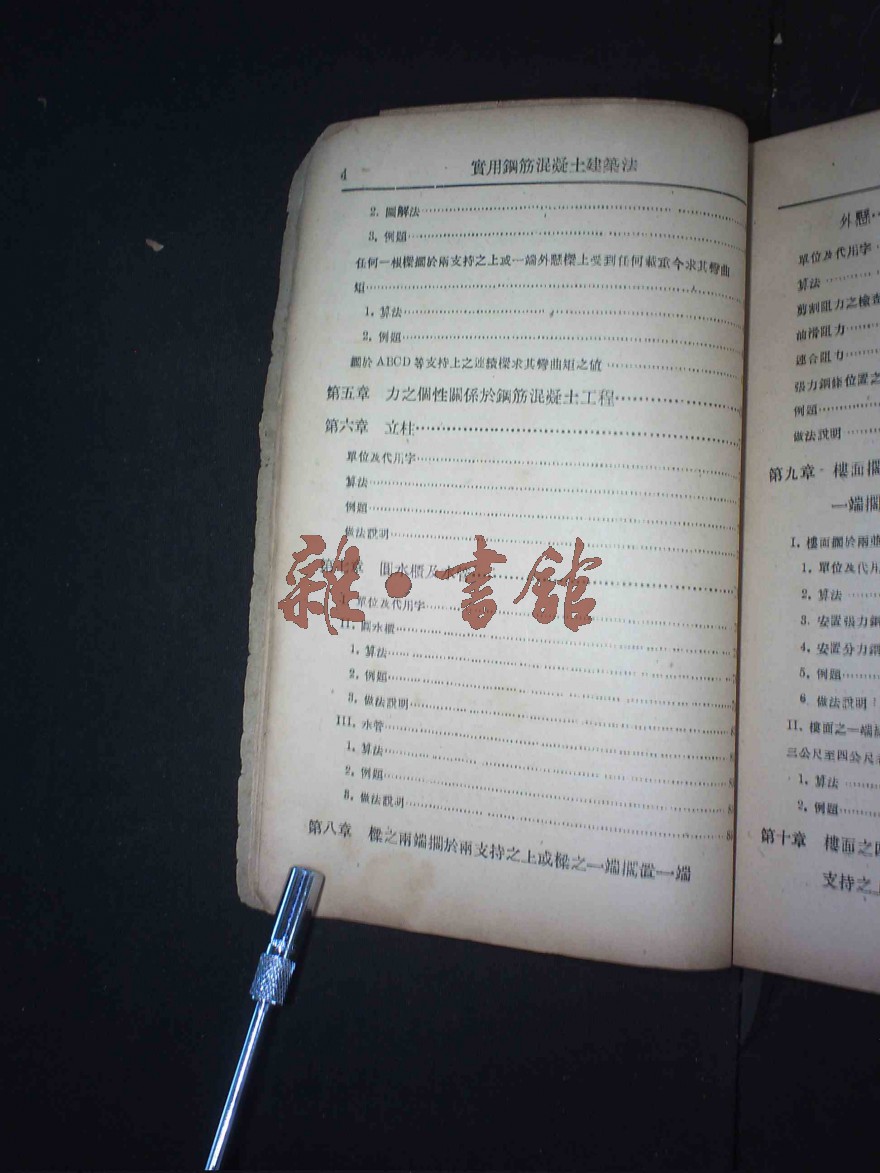 4 實用鋼筋混凝土建築法
2. 圖解法
3. 例題
任何一根樑擱於兩支持之上或一端外懸樑上受到任何載重今求其彎曲
矩
1. 算法
2. 例題
擱於ABCD等支持上之連續樑求其彎曲矩之值
第五章 力之個性關係於鋼筋混凝土工程
第六章 立柱
單位及代用字
算法
例題
做法說明
第七章 圓水櫃及水管
I. 單位及代用字
II. 圓水櫃
1. 算法
2. 例題
3. 做法說明
III. 水管
1. 算法
2. 例題
3. 做法說明
第八章 樑之兩端擱於兩支持之上或樑之一端擱置一端
雜·書館
外懸
單位及代用字
算法
剪割阻力之檢查
抽滑阻力
連合阻力
張力鋼條位置之
例題
做法說明
第九章 樓面擱
一端擱
I. 樓面擱於兩並
1. 單位及代用
2. 算法
3. 安置張力鋼
4. 安置分力鋼
5. 例題
6 做法說明
II. 樓面之一端
三公尺至四公尺
1. 算法
2. 例題
第十章 樓面之四
支持之上